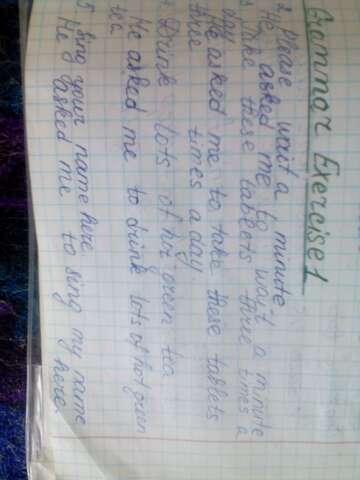 Grammar Exercise 1
2 Please wait a minute
He asked me to wait a minute
3 Take these tablets three times a
day
He asked me to take these tablets
three times a day
Drink lots of hot green tea
He asked me to drink lots of hot green
tea
5 Sing your name here
He asked me to sing my name
here.